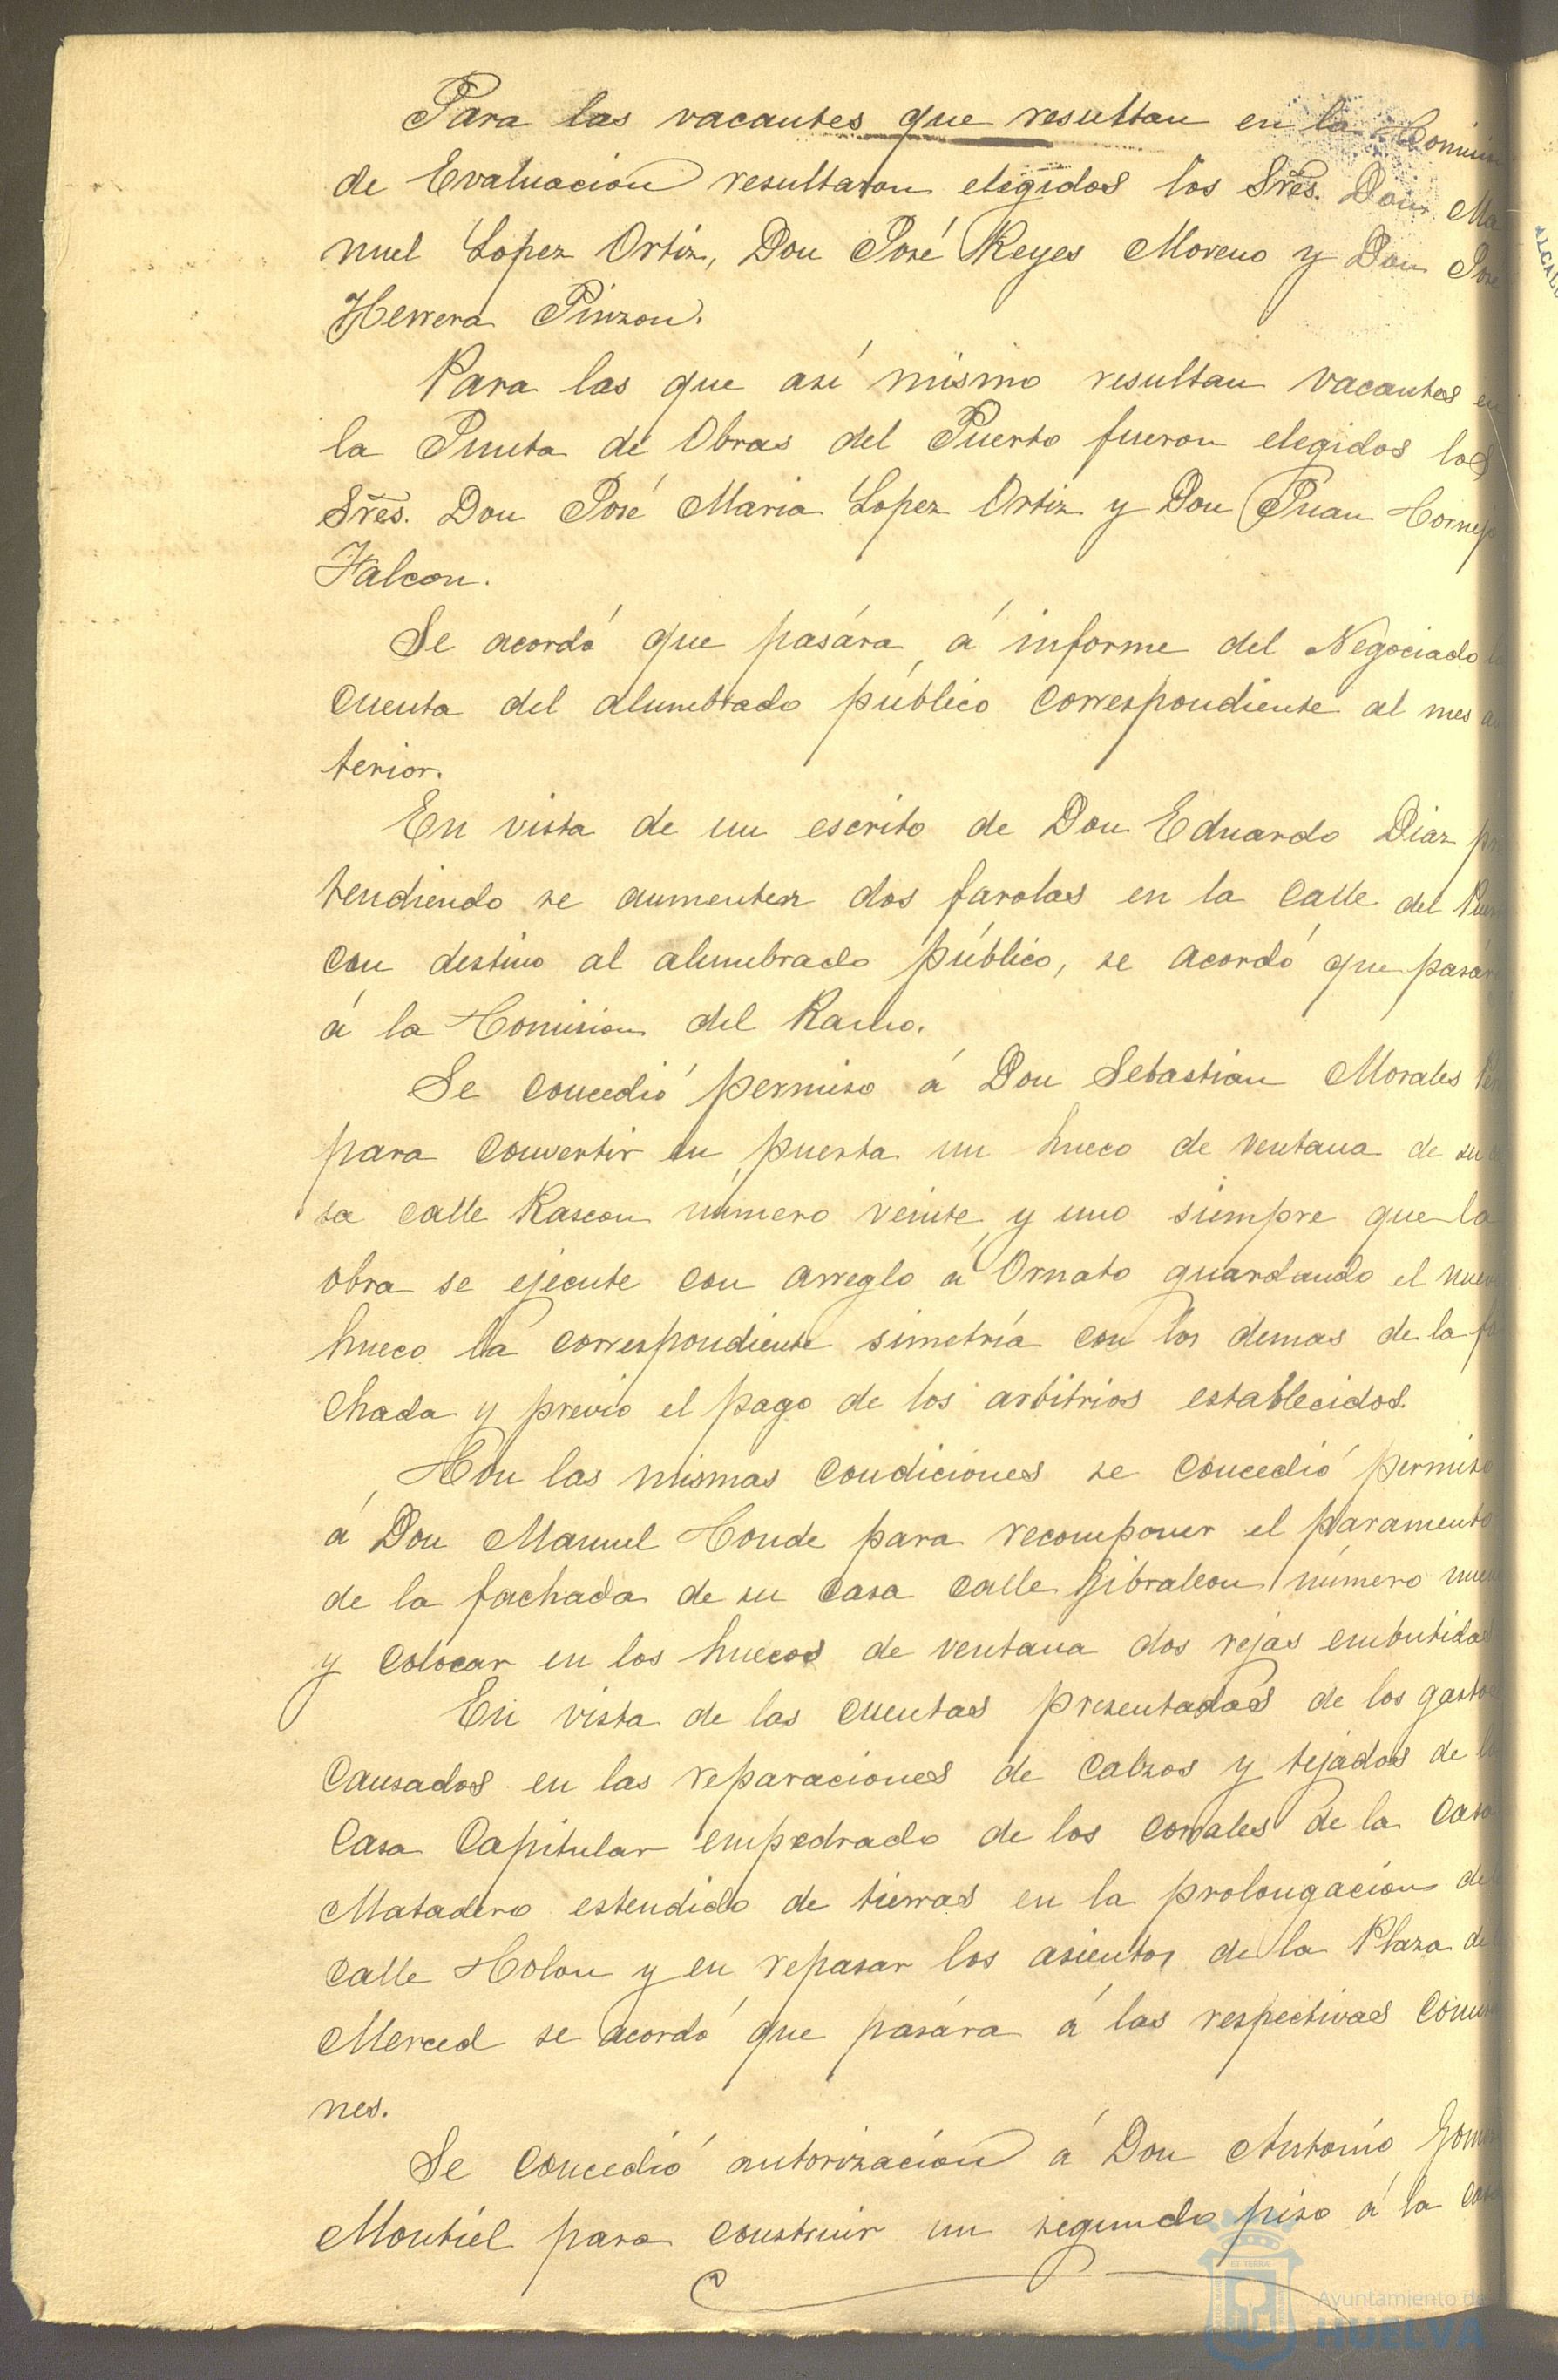 Para las vacantes que resultan en la Comision
de Evaluacion resultaron elegidos los Sres. Don Ma
nuel Lopez Ortiz, Don José Reyes Moreno y Don José
Herrera Pinzon.
Para las que así mismo resultan vacantes en
la Junta de Obras del Puerto fueron elegidos los
Sres. Don José Maria Lopez Ortiz y Don Juan
Falcon.
Se acordó que pasára á informe del Negociado la
cuenta del alumbrado público correspondiente al mes an
terior.
En vista de un escrito de Don Eduardo Diaz pre
tendiendo se aumenten dos farolas en la calle del Puerto
con destino al alumbrado público, se acordó que pasára
á la Comision del Ramo.
Se concedió permiso á Don Sebastián Morales
para convertir en puerta un hueco de ventana de su ca
sa calle Rascon número veinte y uno siempre que la
obra se ejecute con arreglo á Ornato guardando el nuevo
hueco la correspondiente simetría con los demas de la fa
chada y previo el pago de los arbitrios establecidos.
Con las mismas condiciones se concedió permiso
á Don Manuel Conde para recomponer el paramento
de la fachada de su casa calle Gibraleon número nueve
y colocar en los huecos de ventana dos rejas embutidas
En vista de las cuentas presentadas de los gastos
causados en las reparaciones de calzos y tejados de la
Casa Capitular empedrado de los corrales de la Casa
Matadero estendido de tierras en la prolongación de
calle Colon y en repasar los asientos de la Plaza de
Merced se acordó que pasára á las respectivas Comisio
nes.
Se concedió autorización á Don Antonio Gomez
Montiel para construir un segundo piso á la casa
ALCAL
Ayuntamiento de
HUELVA